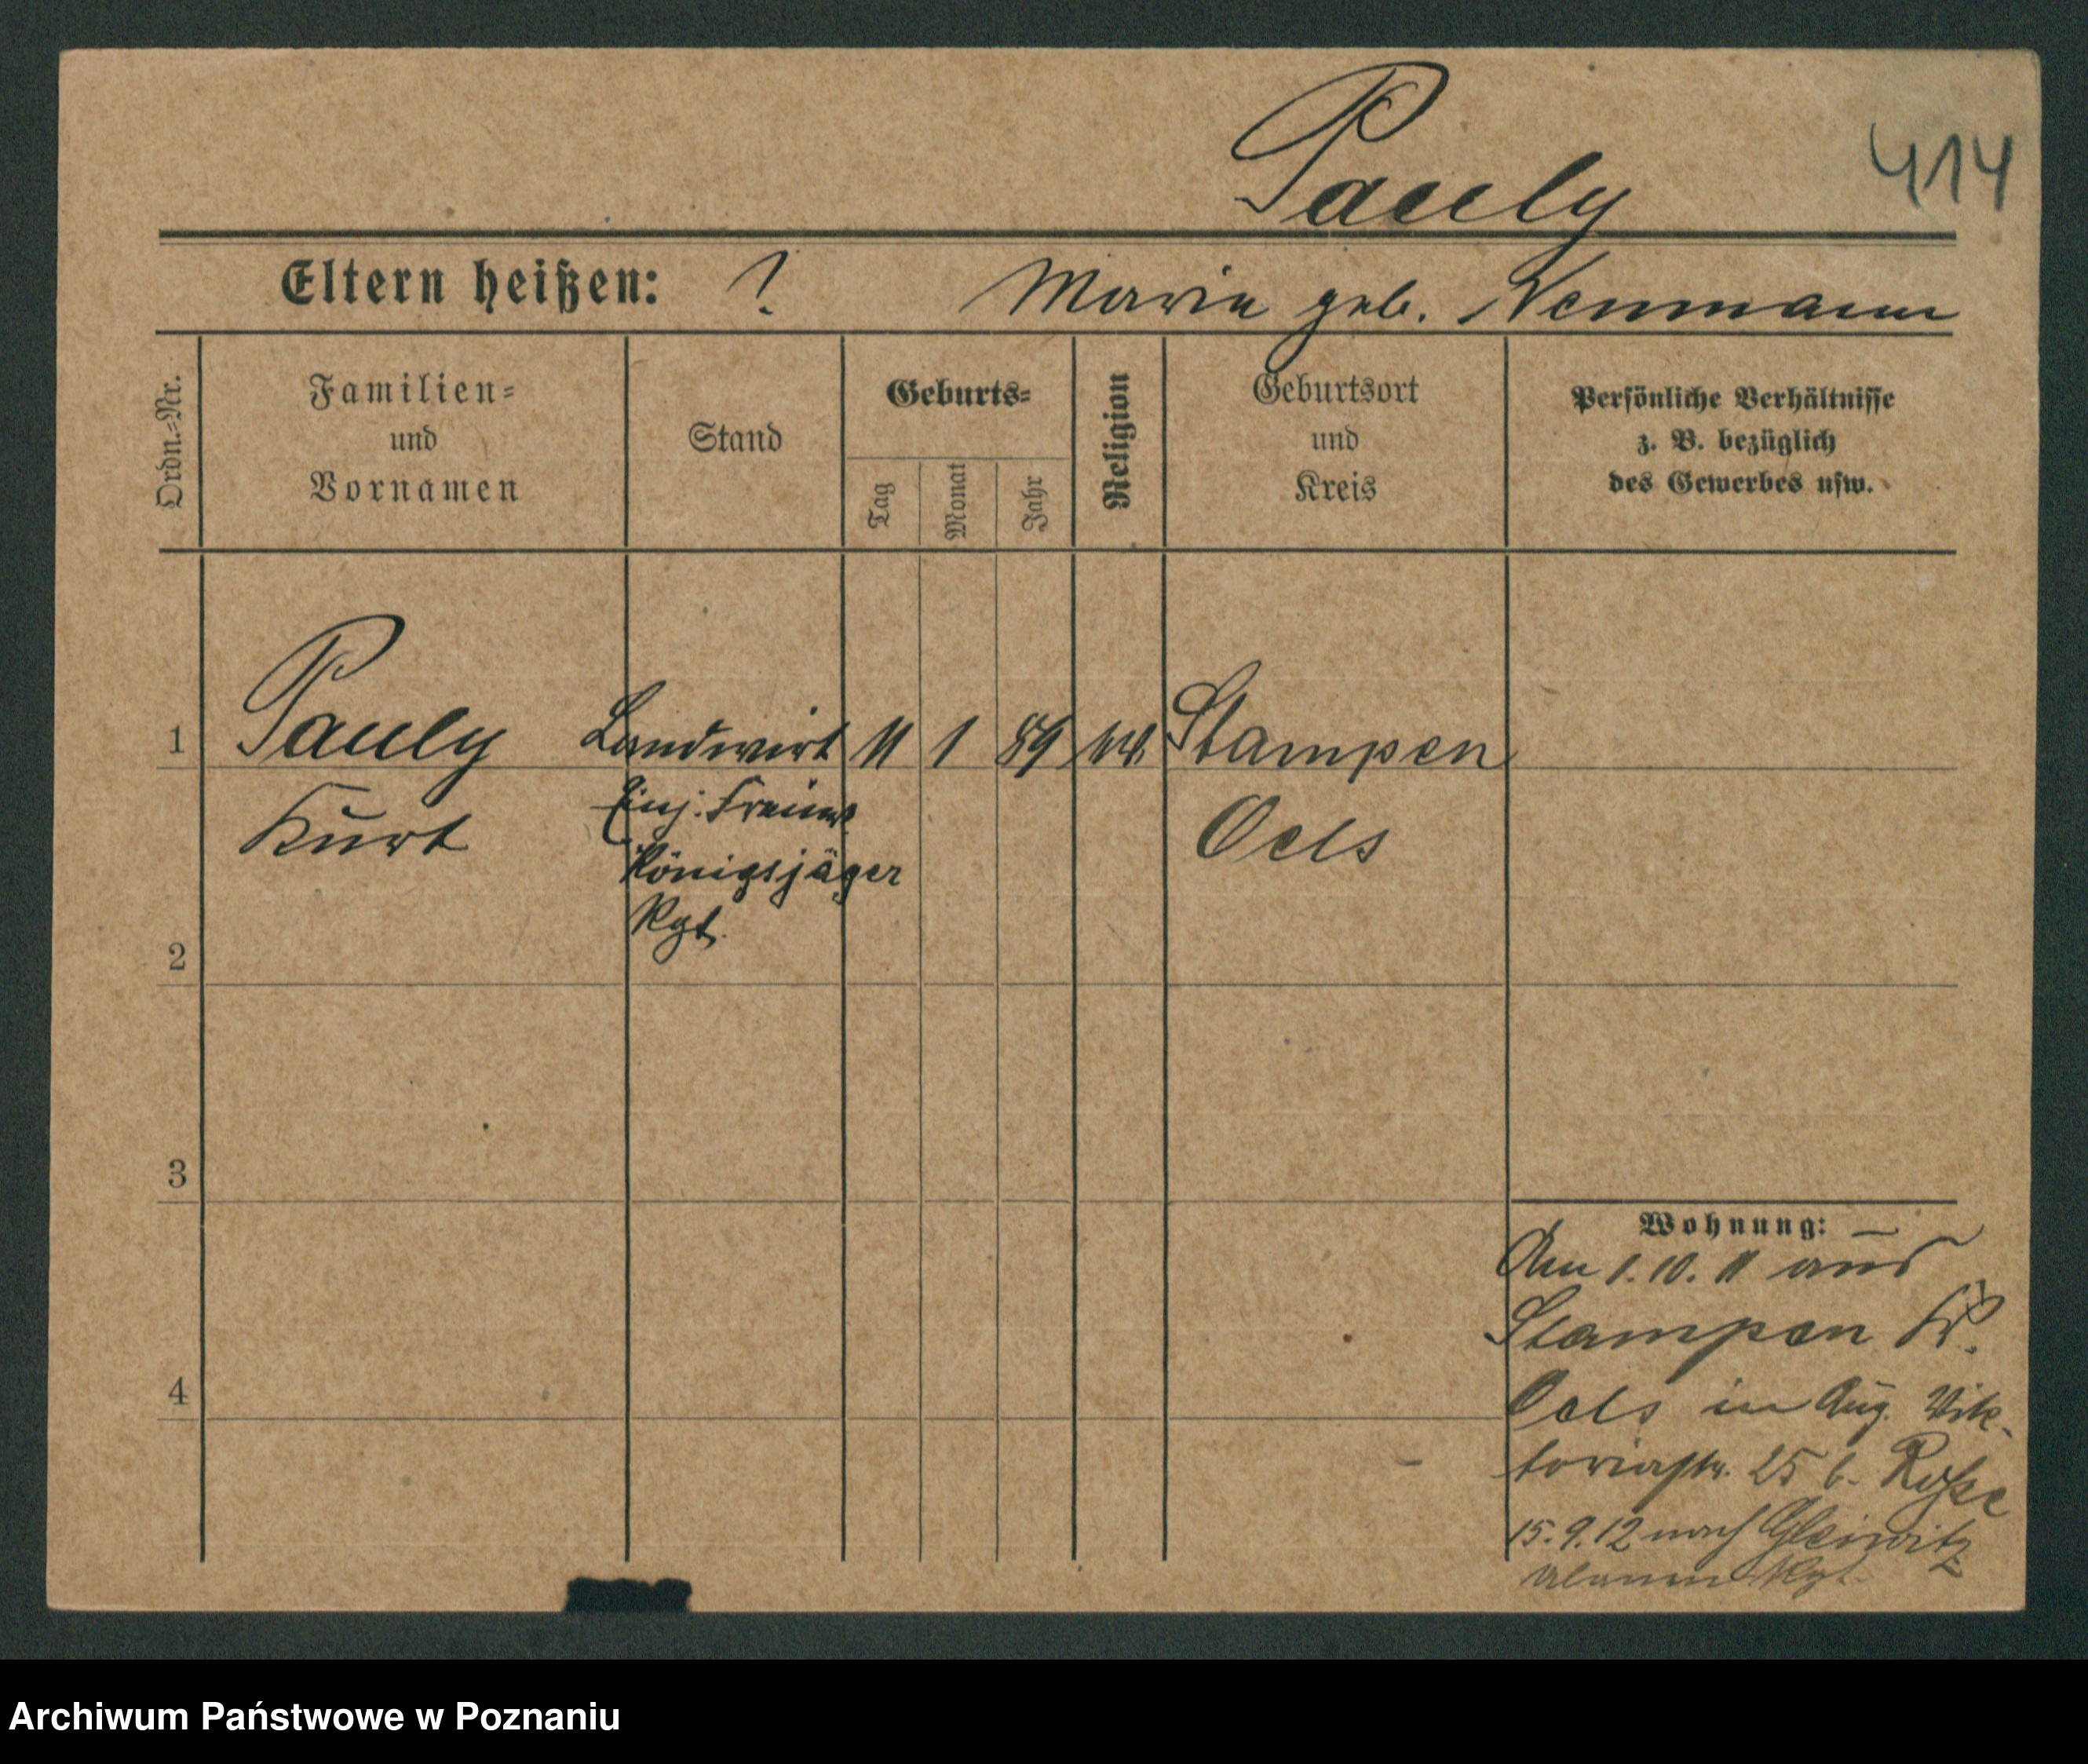 Pauly
414
Eltern heißen: ? Marie geb. Neumann
Ordn.=Nr.
Familien=
und
Vornamen
Stand
Geburts=
Tag
Monat
Jahr
Religion
Geburtsort
und
Kreis
Persönliche Verhältnisse
z. B. bezüglich
des Gewerbes usw.
1 Pauly Landwirt 11 1 89 Stampen
Kurt Einj. Freiw. Oels
Königsjäger
Rgt.
2
3
4
Wohnung: —
Am 1. 10. 11 aus
Stampen Kr.
Oels in Aug. Vik-
toriastr. 25 b.
15. 9. 12 nach Gleiwitz
Ulanen Rgt.
Archiwum Państwowe w Poznaniu